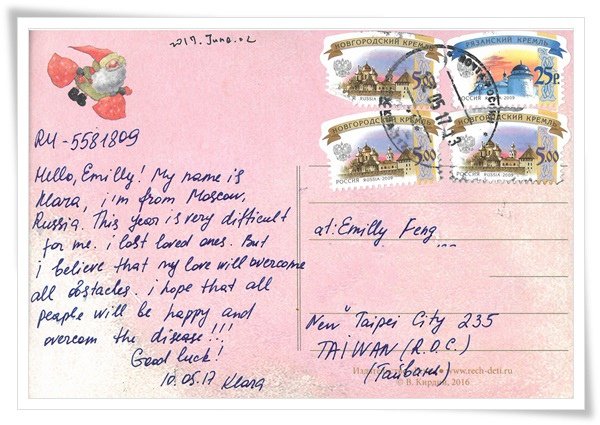 2017. June. 02
НОВГОРОДСКИЙ КРЕМЛЬ
5,00
РОССИЯ RUSSIA 2009
РЯЗАНСКИЙ КРЕМЛЬ
25р.
РОССИЯ 2009
НОВГОРОДСКИЙ КРЕМЛЬ
5,00
РОССИЯ RUSSIA 2009
НОВГОРОДСКИЙ КРЕМЛЬ
5,00
РОССИЯ RUSSIA 2009
RU-5581809
Hello, Emilly! My name is
Klara, i'm from Moscow,
Russia. This year is very difficult
for me. i lost loved ones. But
i believe that my love will overcome
all obstacles. i hope that all
people will be happy and
overcom the disease!!!
Good luck!
10.05.17 Klara
at: Emilly Feng
New Taipei City 235
TAIWAN (R.O.C.)
(Тайвань)
www.rech-deti.ru
© В. Кирдий, 2016